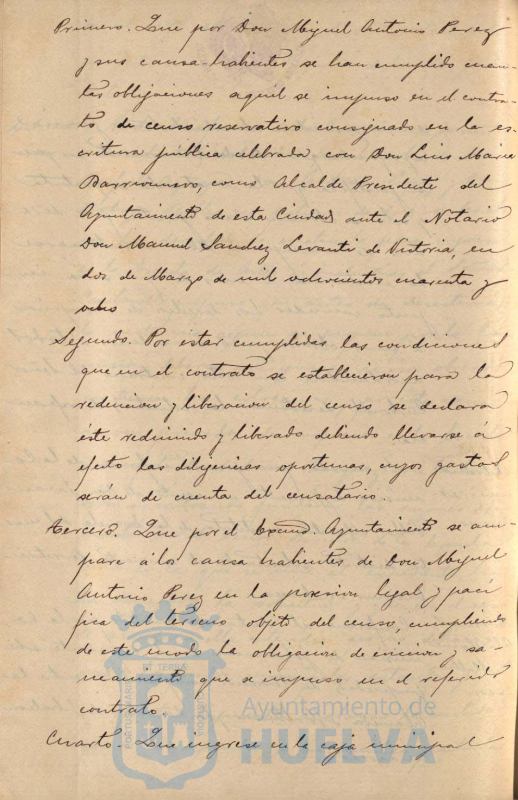 Primero. Que por Don Miguel Antonio Perez
y sus causa-habientes se han cumplido cuan-
tas obligaciones aquél se impuso en el contra-
to de censo reservativo consignado en la es-
critura pública celebrada con Don Luis Maria
Barrionuevo, como Alcalde Presidente del
Ayuntamiento de esta Ciudad ante el Notario
Don Manuel Sanchez Levanti de Victoria, en
dos de Marzo de mil ochocientos cuarenta y
ocho
Segundo. Por estar cumplidas las condiciones
que en el contrato se establecieron para la
redencion y liberacion del censo se declara
éste redimido y liberado debiendo llevarse á
efecto las diligencias oportunas, cuyos gastos
serán de cuenta del censatario.
Tercero. Que por el Excmo. Ayuntamiento se am-
pare á los causa habientes de Don Miguel
Antonio Perez en la posesion legal y paci-
fica del terreno objeto del censo, cumpliendo
de este modo la obligacion de eviccion y sa-
neamiento que se impuso en el referido
contrato.
Cuarto. Que ingrese en la caja municipal
Ayuntamiento de
HUELVA